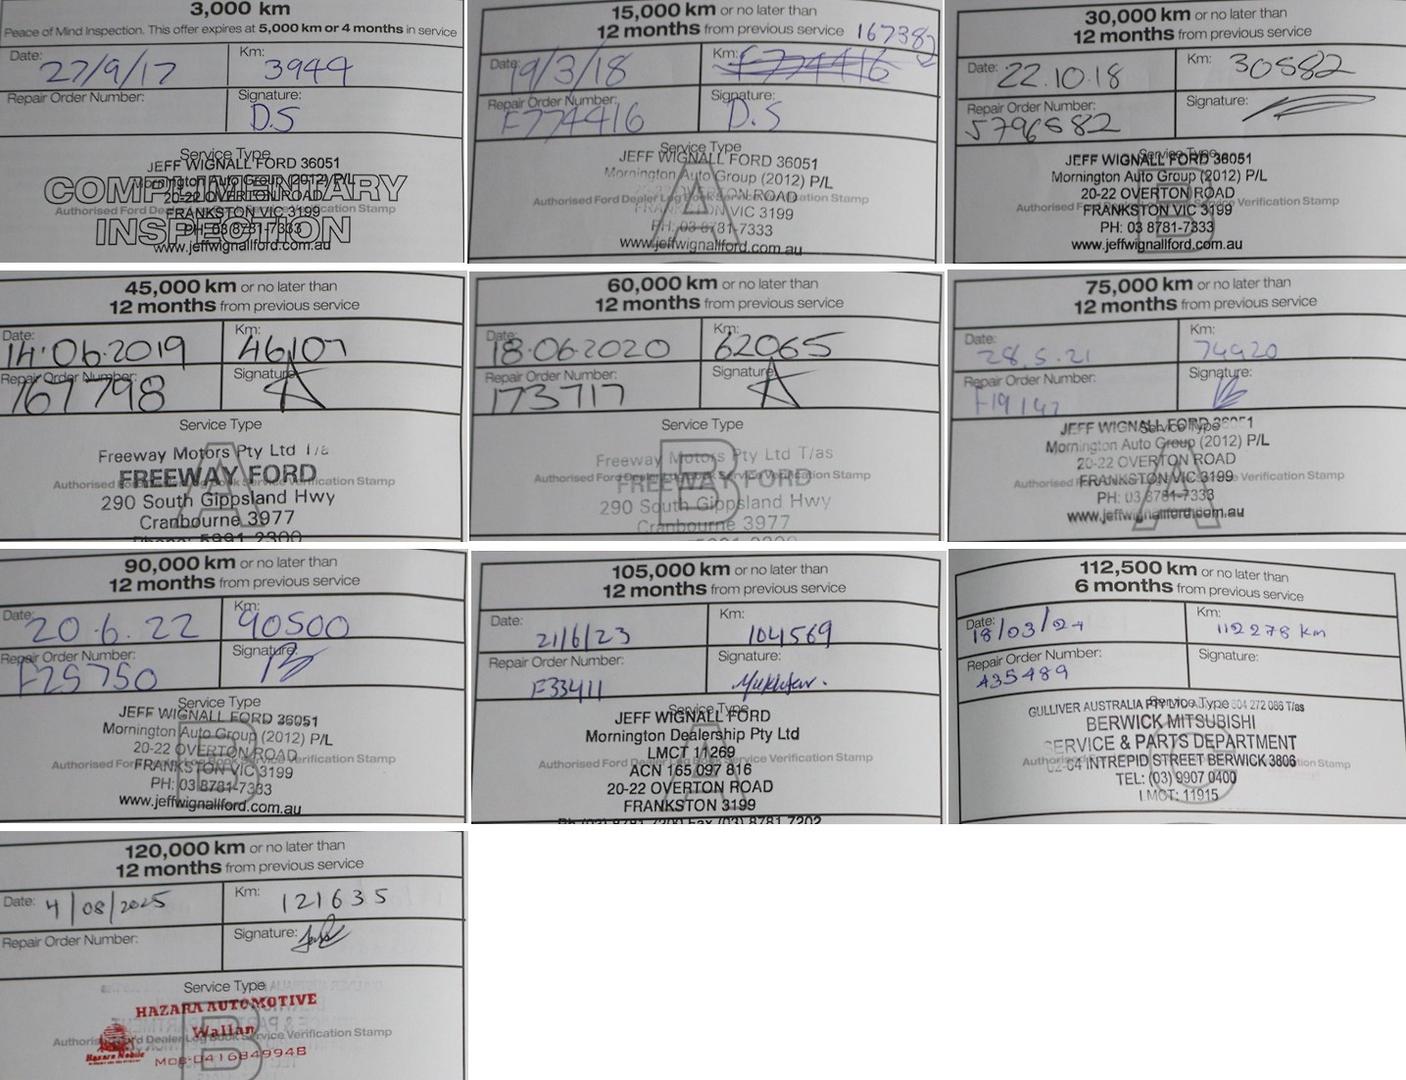 3,000 km
Peace of Mind Inspection. This offer expires at 5,000 km or 4 months in service
Date: 27/9/17
Km: 3944
Repair Order Number:
Signature: D.S
Service Type
JEFF WIGNALL FORD 36051
Mornington Auto Group (2012) P/L
COMPLIMENTARY
20-22 OVERTON ROAD
Authorised Ford Dealer Log Book Service Verification Stamp
FRANKSTON VIC 3199
INSPECTION
PH: 03 8781-7333
www.jeffwignallford.com.au
15,000 km or no later than
12 months from previous service 167382
Date: 19/3/18
Km: F774416
Repair Order Number: F774416
Signature: D.S
Service Type
JEFF WIGNALL FORD 36051
Mornington Auto Group (2012) P/L
20-22 OVERTON ROAD
Authorised Ford Dealer Log Book Service Verification Stamp
FRANKSTON VIC 3199
PH: 03 8781-7333
www.jeffwignallford.com.au
A
30,000 km or no later than
12 months from previous service
Date: 22.10.18
Km: 30582
Repair Order Number: 5796582
Signature:
Service Type
JEFF WIGNALL FORD 36051
Mornington Auto Group (2012) P/L
20-22 OVERTON ROAD
Authorised Ford Dealer Log Book Service Verification Stamp
FRANKSTON VIC 3199
PH: 03 8781-7333
www.jeffwignallford.com.au
B
45,000 km or no later than
12 months from previous service
Date: 14.06.2019
Km: 46107
Repair Order Number: 167798
Signature:
Service Type
Freeway Motors Pty Ltd T/a
FREEWAY FORD
Authorised Ford Dealer Log Book Service Verification Stamp
290 South Gippsland Hwy
Cranbourne 3977
Phone: 5991 2300
A
60,000 km or no later than
12 months from previous service
Date: 18.06.2020
Km: 62065
Repair Order Number: 173717
Signature:
Service Type
Freeway Motors Pty Ltd T/as
FREEWAY FORD
Authorised Ford Dealer Log Book Service Verification Stamp
290 South Gippsland Hwy
Cranbourne 3977
5991 2300
B
75,000 km or no later than
12 months from previous service
Date: 28.5.21
Km: 74920
Repair Order Number: F19147
Signature:
Service Type
JEFF WIGNALL FORD 36051
Mornington Auto Group (2012) P/L
20-22 OVERTON ROAD
Authorised Ford Dealer Log Book Service Verification Stamp
FRANKSTON VIC 3199
PH: 03 8781-7333
www.jeffwignallford.com.au
A
90,000 km or no later than
12 months from previous service
Date: 20.6.22
Km: 90500
Repair Order Number: F25750
Signature:
Service Type
JEFF WIGNALL FORD 36051
Mornington Auto Group (2012) P/L
20-22 OVERTON ROAD
Authorised Ford Dealer Log Book Service Verification Stamp
FRANKSTON VIC 3199
PH: 03 8781-7333
www.jeffwignallford.com.au
B
105,000 km or no later than
12 months from previous service
Date: 21/6/23
Km: 104569
Repair Order Number: F33411
Signature:
Service Type
JEFF WIGNALL FORD
Mornington Dealership Pty Ltd
LMCT 11269
Authorised Ford Dealer Log Book Service Verification Stamp
ACN 165 097 816
20-22 OVERTON ROAD
FRANKSTON 3199
Ph (03) 8781 7200 Fax (03) 8781 7202
A
112,500 km or no later than
6 months from previous service
Date: 18/03/24
Km: 112278 km
Repair Order Number: A35489
Signature:
Service Type
GULLIVER AUSTRALIA PTY LTD 604 272 086 T/as
BERWICK MITSUBISHI
SERVICE & PARTS DEPARTMENT
62-64 INTREPID STREET BERWICK 3806
Authorised Stamp
TEL: (03) 9907 0400
LMCT: 11915
C
120,000 km or no later than
12 months from previous service
Date: 4/08/2025
Km: 121635
Repair Order Number:
Signature:
Service Type
HAZARA AUTOMOTIVE
Wallan
Authorised Ford Dealer Log Book Service Verification Stamp
Hazara Mobile
MOB-0416849948
B